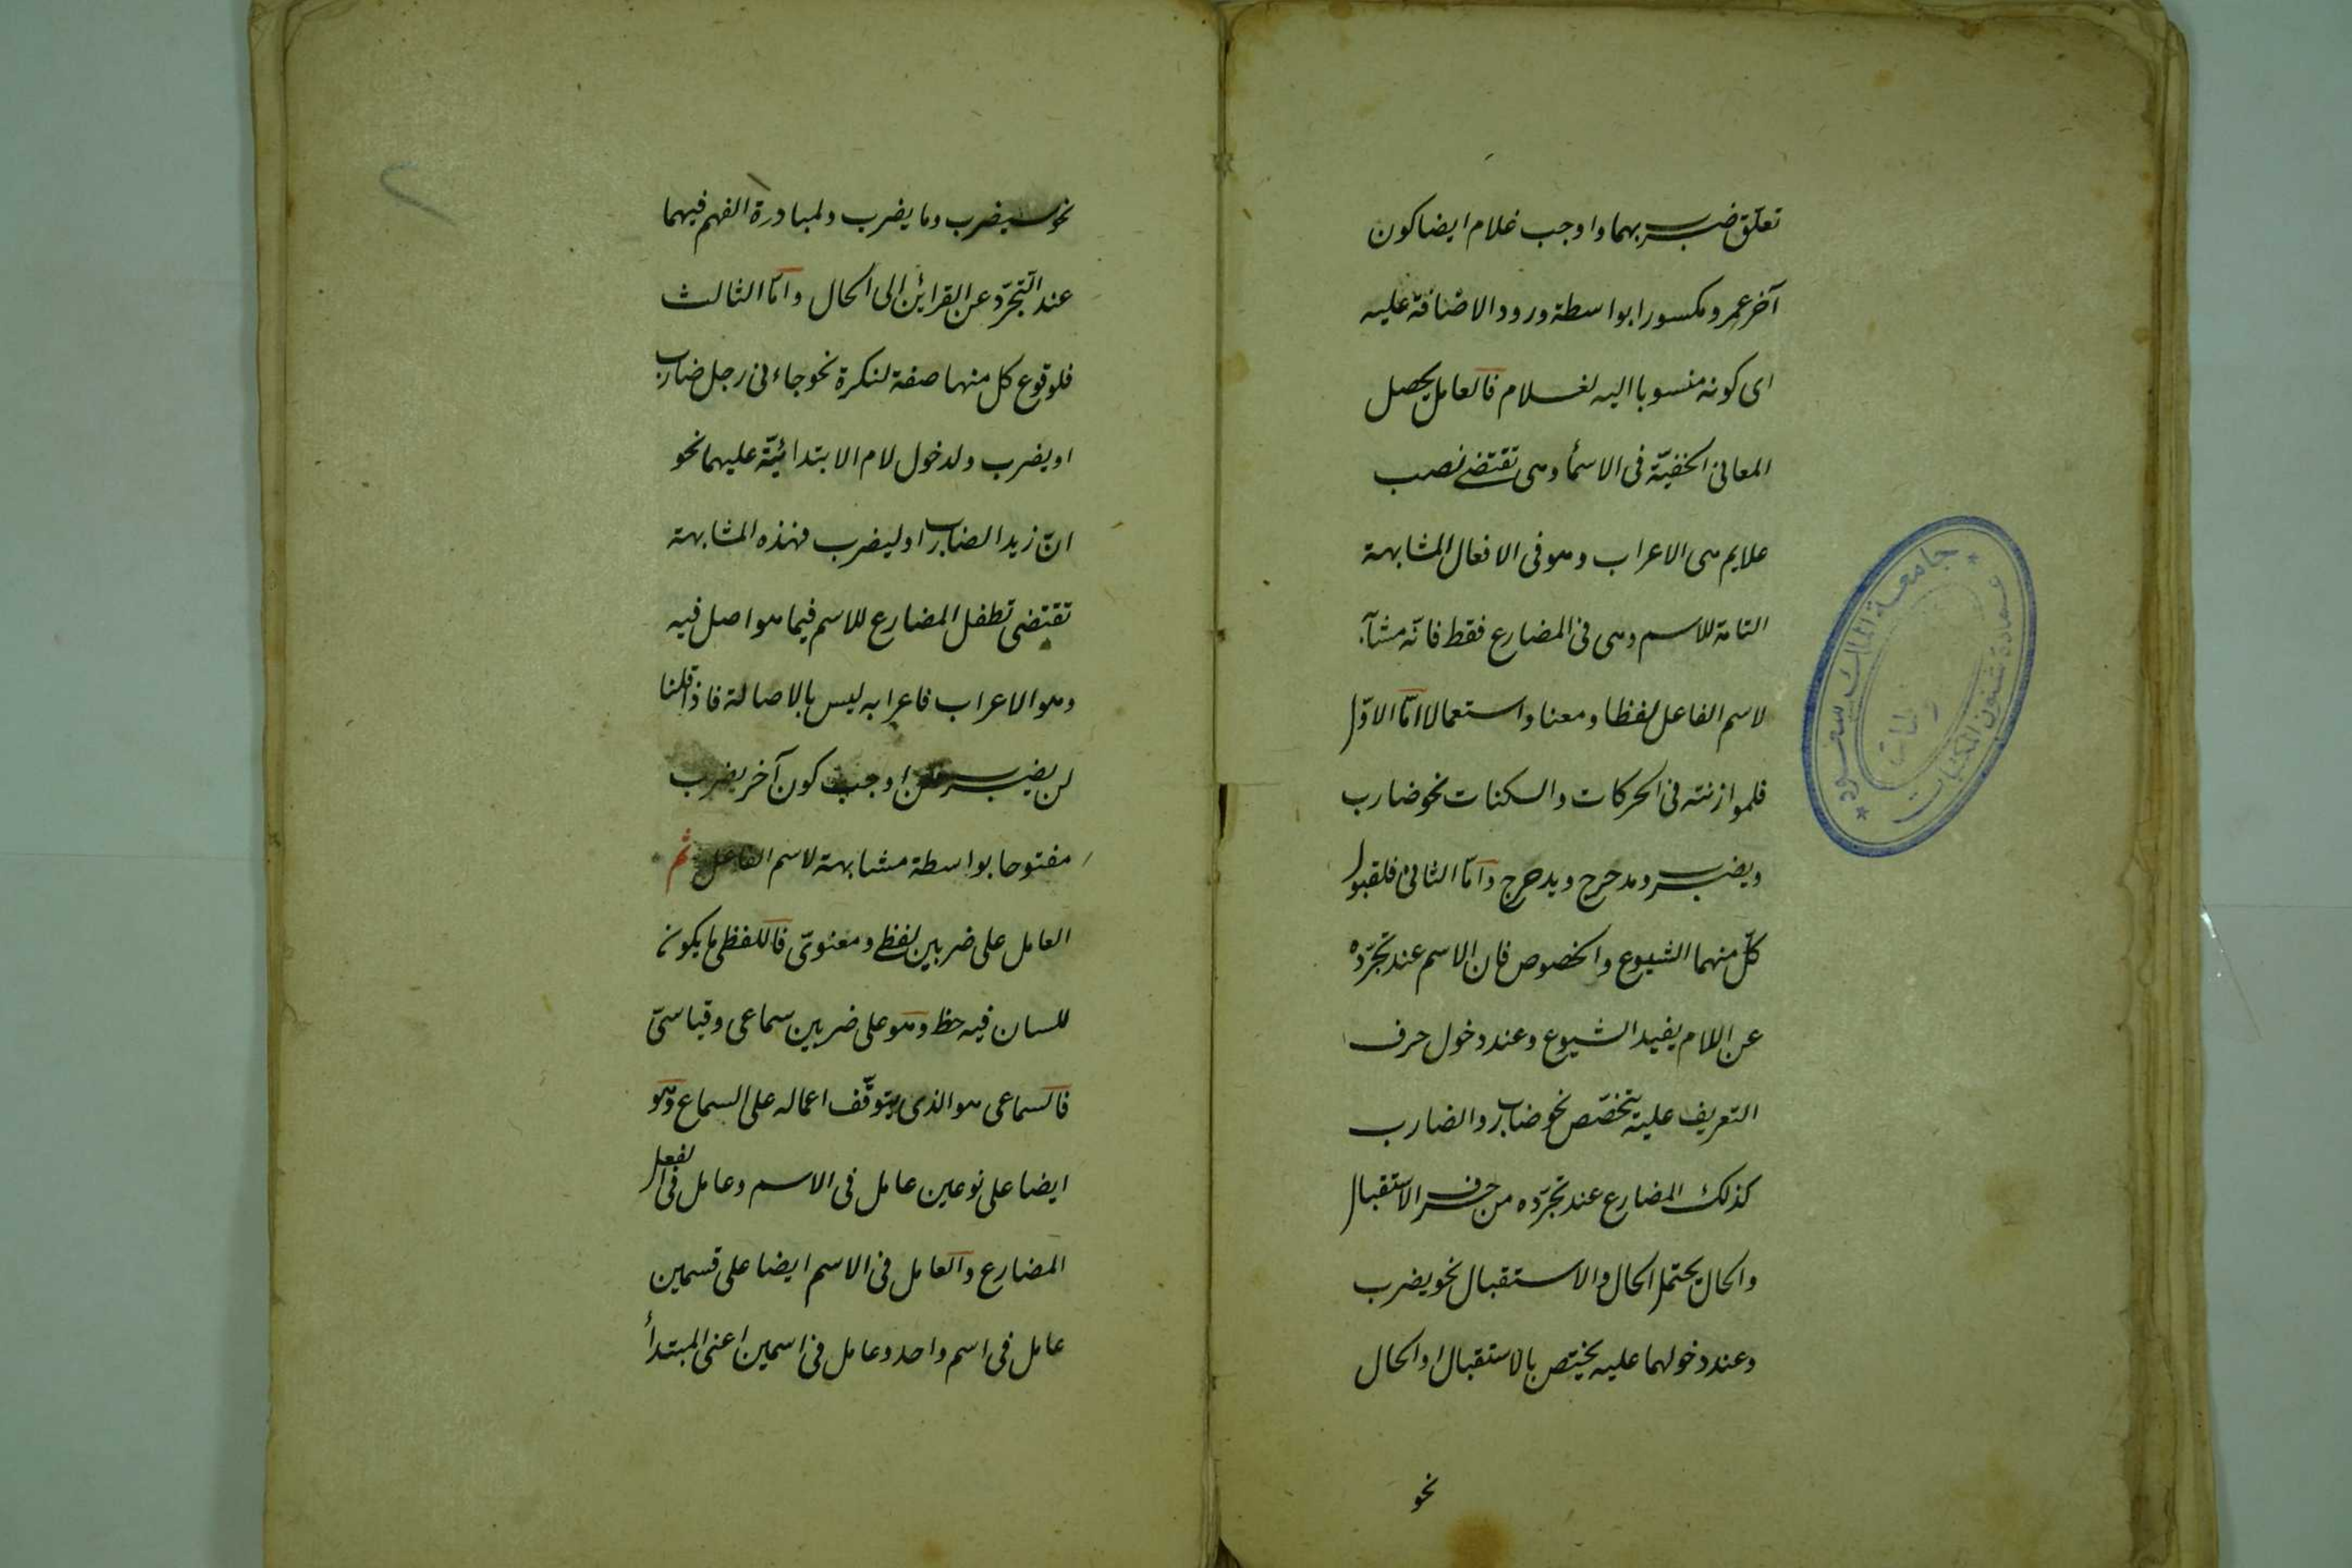 تعلّق ضرب بهما واوجب غلام ايضا كون
آخر عمرو مكسورا بواسطة ورود الاضافة عليه
اى كونه منسوبا اليه لغلام فالعامل يحصل
المعانى الخفيّة فى الاسمأ وهى تقتضى نصب
علايم هى الاعراب وهو فى الافعال المشابهة
التامة للاسم وهى فى المضارع فقط فانّه مشابه
لاسم الفاعل لفظا ومعنا واستعمالا امّا الاوّل
فلموازنته فى الحركات والسكنات نحو ضارب
ويضرب ومدحرج ويدحرج وامّا الثانى فلقبول
كلّ منهما الشيوع والخصوص فان الاسم عند تجرّده
عن اللام يفيد الشيوع وعند دخول حرف
التعريف عليه يتخصّص نحو ضارب والضارب
كذلك المضارع عند تجرّده من حرف الاستقبال
والحال يحتمل الحال والاستقبال نحو يضرب
وعند دخولهما عليه يختص بالاستقبال او الحال
نحو
جامعة الملك سعود
عمادة شئون المكتبات
نحو سيضرب وما يضرب ولمبادرة الفهم فيهما
عند التجرّد عن القرائن الى الحال وامّا الثالث
فلوقوع كل منهما صفة لنكرة نحو جاءنى رجل ضارب
او يضرب ولدخول لام الابتدائيّة عليهما نحو
انّ زيدا لضارب او ليضرب فهذه المشابهة
تقتضى تطفل المضارع للاسم فيما هو اصل فيه
وهو الاعراب فاعرابه ليس بالاصالة فاذا قلنا
لن يضرب فلن اوجب كون آخر يضرب
مفتوحا بواسطة مشابهة لاسم الفاعل ثم
العامل على ضربين لفظى ومعنوىّ فاللفظى ما يكون
للسان فيه حظ وهو على ضربين سماعى وقياسىّ
فالسماعى هو الذى يتوقّف اعماله على السماع وهو
ايضا على نوعين عامل فى الاسم وعامل فى الفعل
المضارع والعامل فى الاسم ايضا على قسمين
عامل فى اسم واحد وعامل فى اسمين اعنى المبتدأ